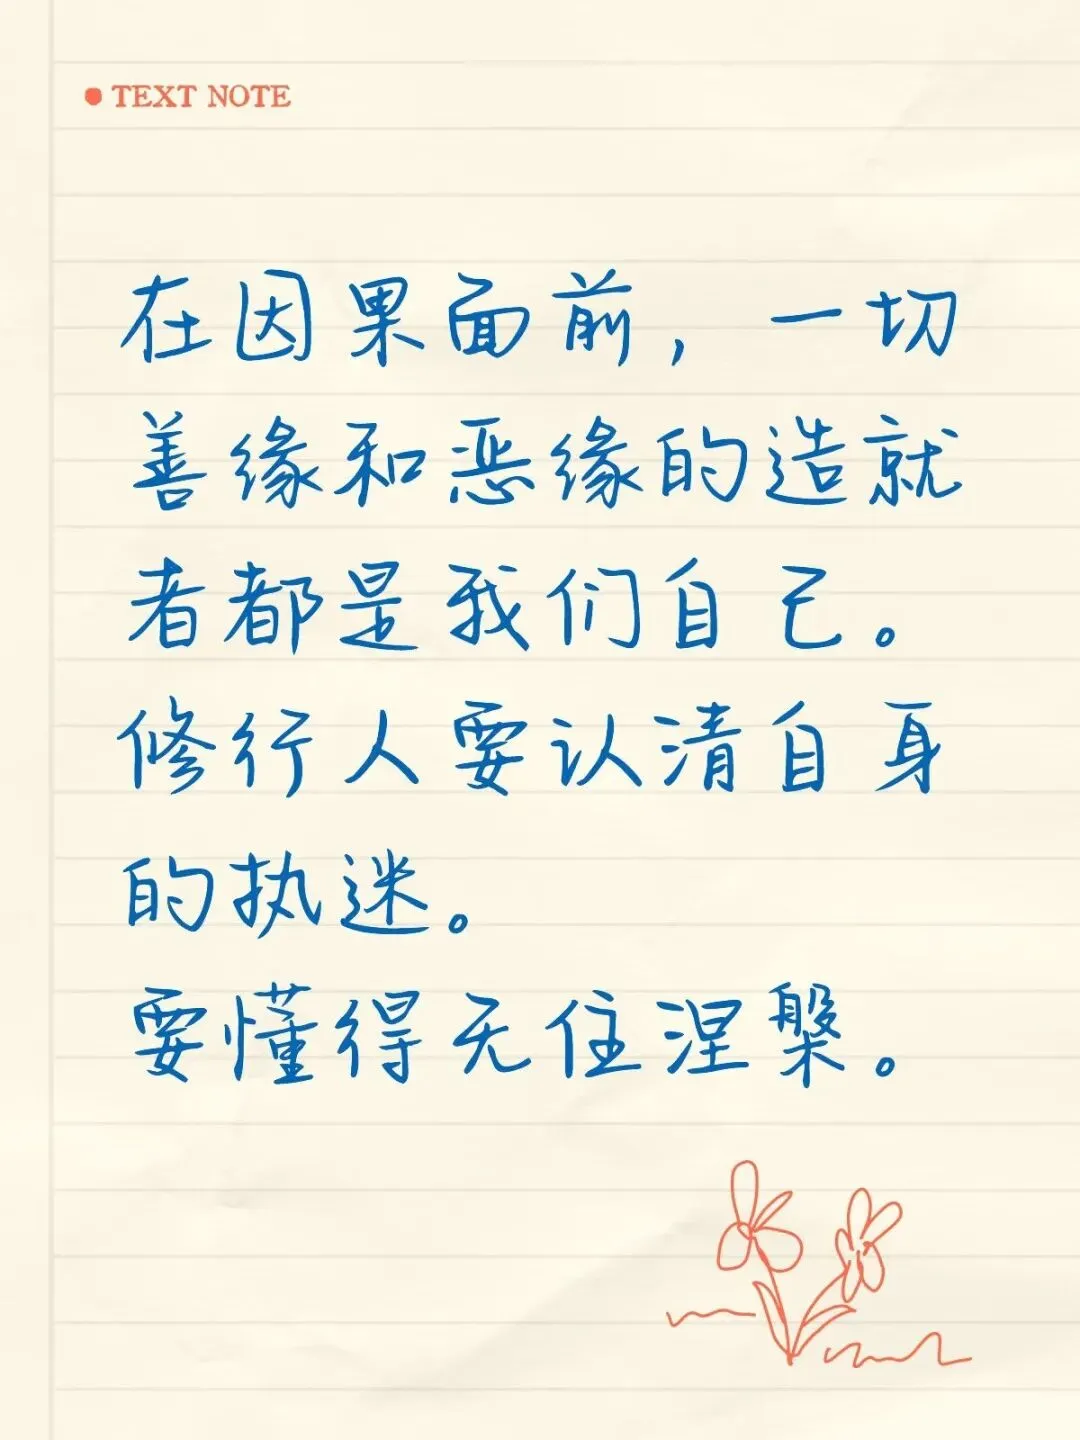 TEXT NOTE
在因果面前，一切
善缘和恶缘的造就
者都是我们自己。
修行人要认清自身
的执迷。
要懂得无住涅槃。